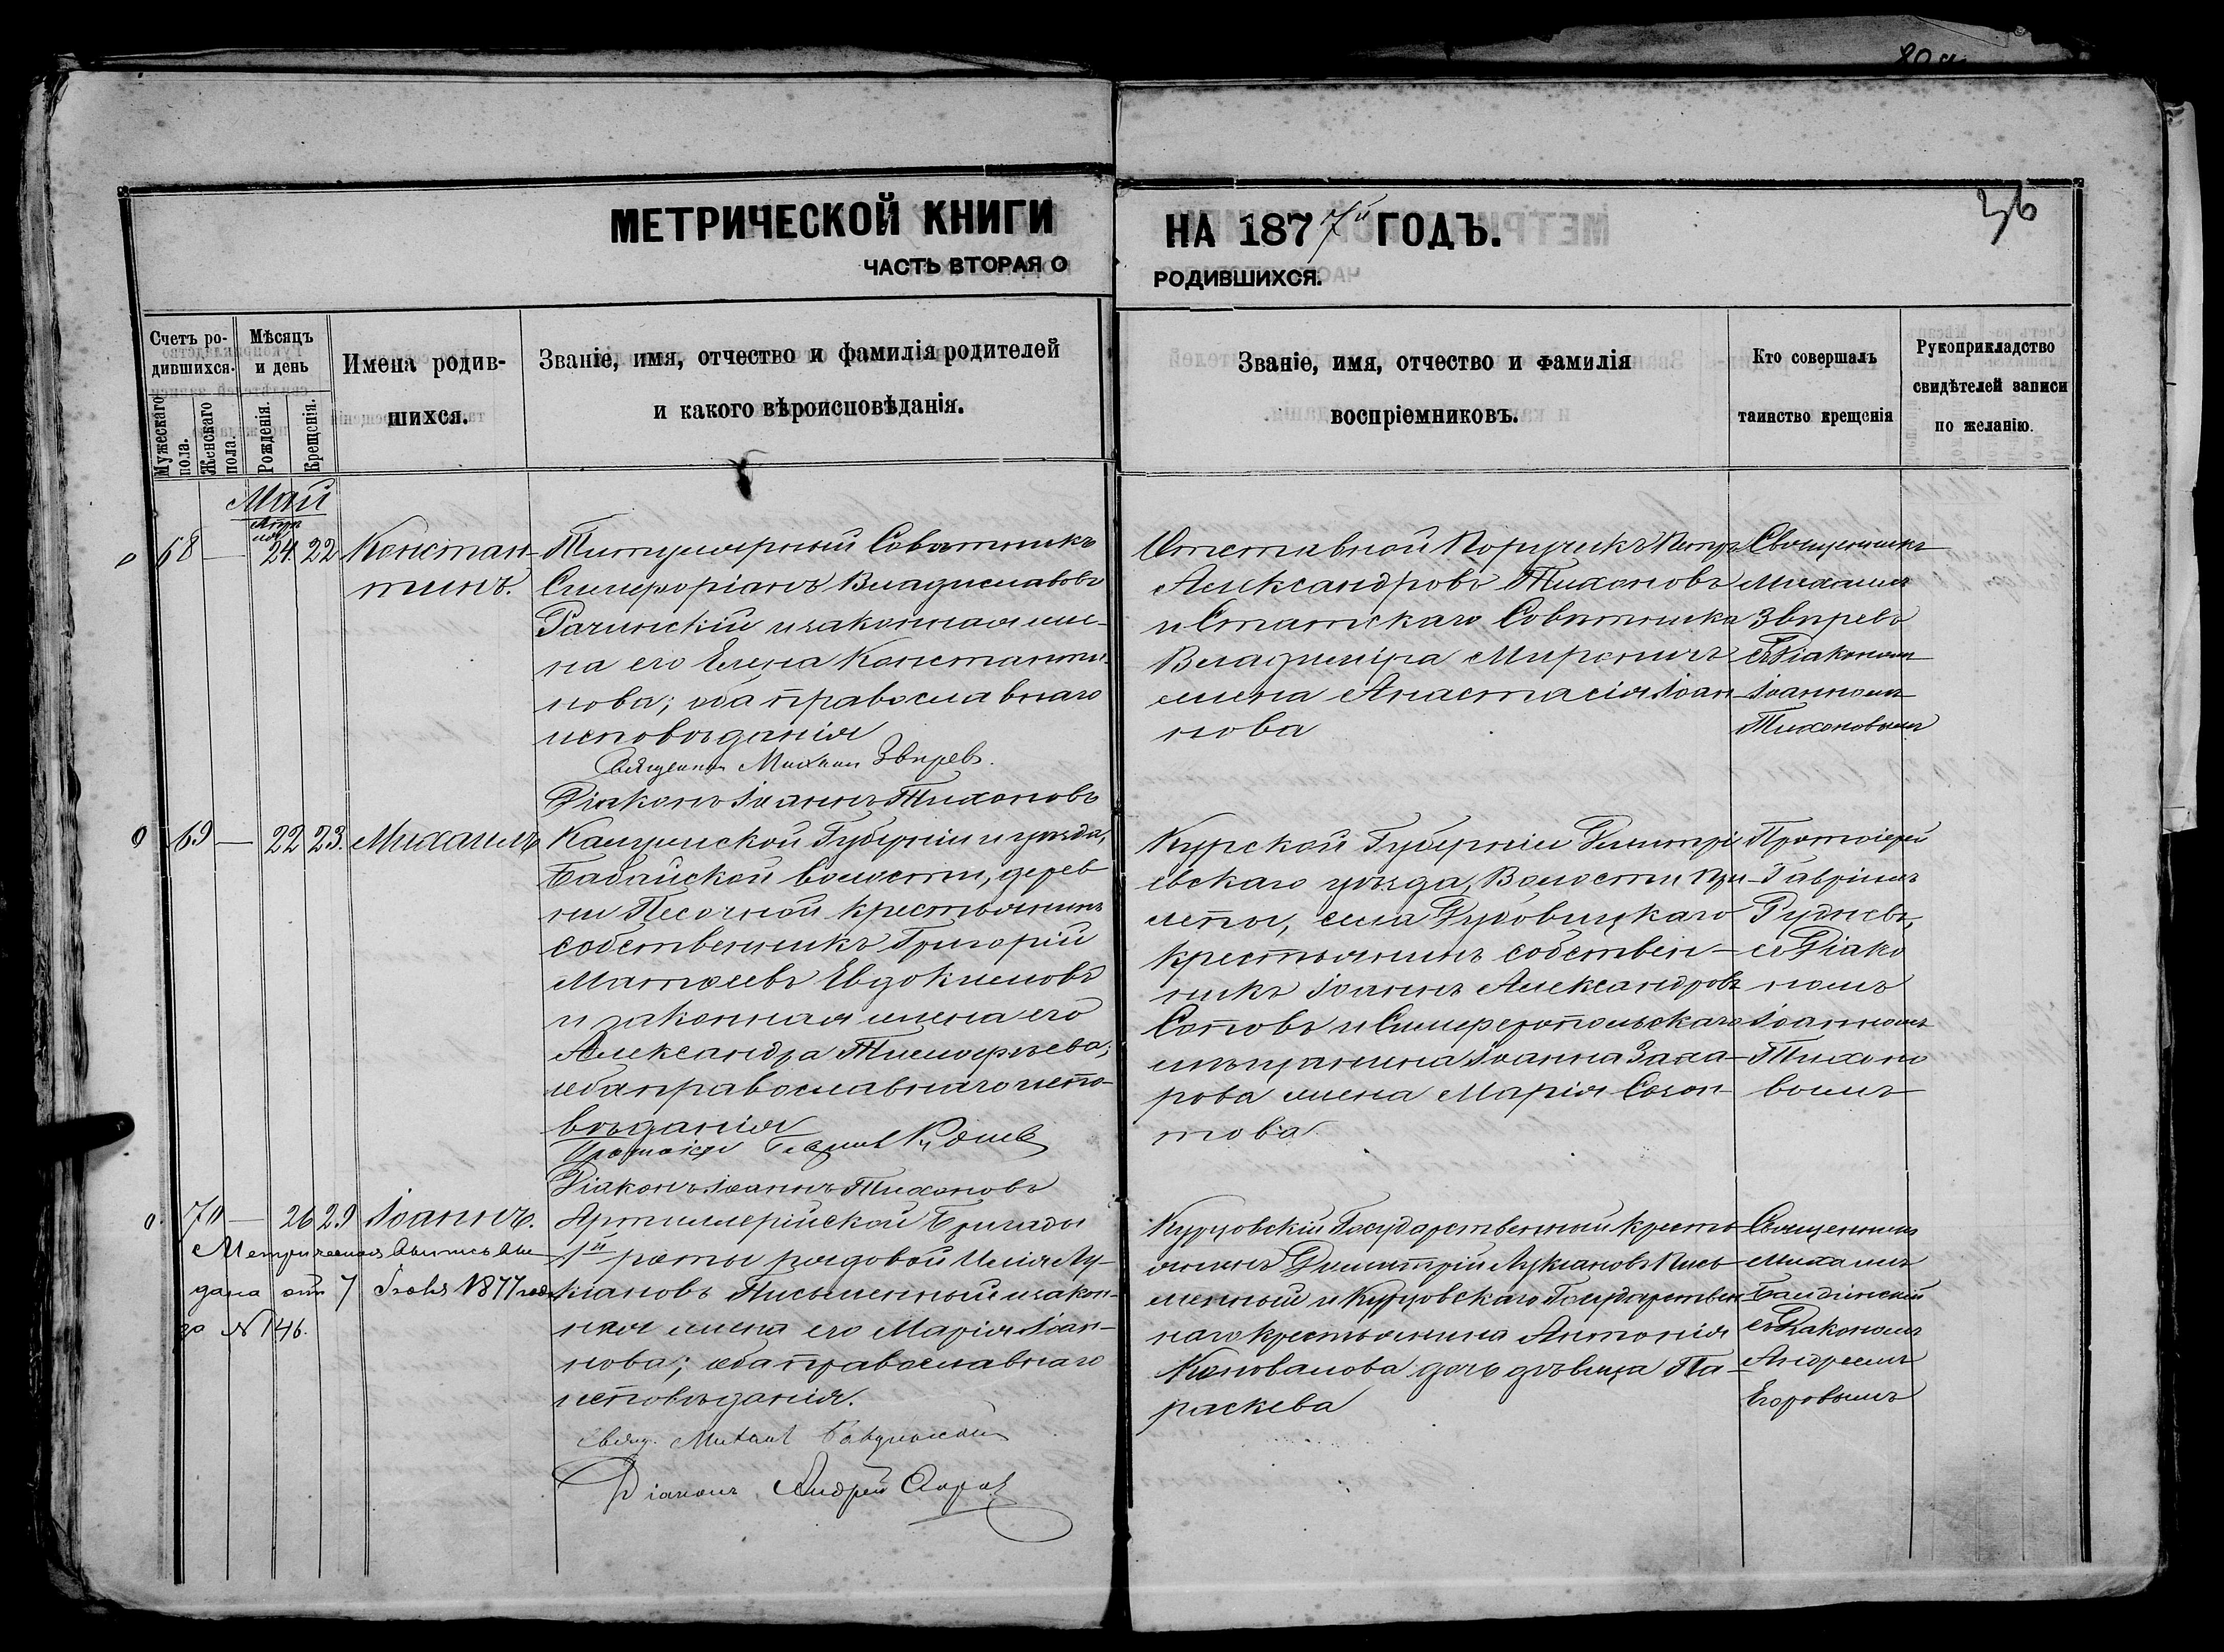 МЕТРИЧЕСКОЙ КНИГИ
ЧАСТЬ ВТОРАЯ О
НА 1877й ГОДЪ.
РОДИВШИХСЯ.
36
Счетъ ро-
дившихся.
Мужескаго пола.
Женскаго пола.
Мѣсяцъ
и день
Рожденія.
Крещенія.
Имена родив-
шихся.
Званіе, имя, отчество и фамилія родителей
и какого вѣроисповѣданія.
Званіе, имя, отчество и фамилія
воспріемниковъ.
Кто совершалъ
таинство крещенія
Рукоприкладство
свидѣтелей записи
по желанію.
Май
68 — 24. 22
Констан-
тинъ.
Титулярный Совѣтникъ
Симфоріанъ Владиславовъ
Рачинскій и законная же-
на его Елена Константи-
нова; оба православнаго
исповѣданія
Священник Михаил Звѣревъ.
Діаконъ Іоаннъ Тихоновъ
Отставной Поручикъ Петръ
Александровъ Тихоновъ
и Статскаго Совѣтника
Владиміра Миронича
жена Анастасія Іоан-
нова
Священникъ
Михаилъ
Звѣревъ
съ Діакономъ
Іоанномъ
Тихоновымъ
69 — 22 23.
Михаилъ
Калужской Губерніи и уѣзда,
Бабайской волости, дерев-
ни Песочной крестьянинъ
собственникъ Григорій
Матѳеевъ Евдокимовъ
и законная жена его
Александра Тимоѳеева;
оба православнаго испо-
вѣданія
Протоіерей Гавріил Руднев
Діаконъ Іоаннъ Тихоновъ
Курской Губерніи Димитрі-
евскаго уѣзда, Волости
села
крестьянинъ собствен-
никъ Іоаннъ Александровъ
и Симферопольскаго
мѣщанина Іоанна Заха-
рова жена Марія Созон-
това
Протоіерей
Гавріилъ
Рудневъ,
съ Діако
номъ
Іоанномъ
Тихоно
вымъ
70 — 26 29
Іоаннъ.
Метрическая выпись вы-
дана отъ 7 Іюня 1877 года
за № 146.
Артиллерійской Бригады
1й роты рядовой Илія Лу-
кіановъ Письменный и закон-
ная жена его Марія Іоан-
нова; оба православнаго
исповѣданія.
Свящ. Михаил
Діаконъ Андрей
Курцовскій Государственный кресть-
янинъ Димитрій Лукіановъ Пись-
менный и Курцовскаго Государствен-
наго крестьянина Антонія
Коновалова дочь дѣвица Па-
раскева
Священникъ
Михаилъ
съ Діакономъ
Андреемъ
Егоровымъ